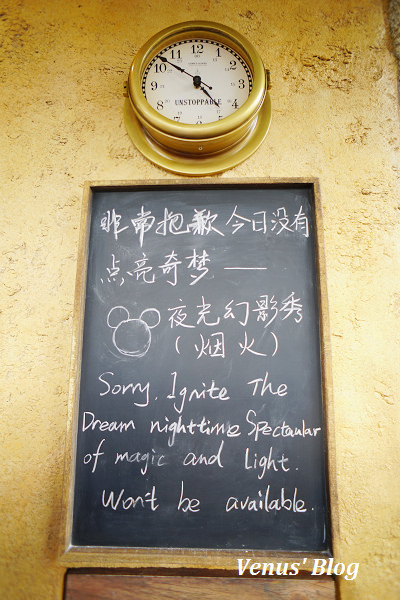 11 12 1
10 2
9 3
8 4
UNSTOPPABLE
非常抱歉今日没有
点亮奇梦——
夜光幻影秀
(烟火)
Sorry. Ignite The
Dream nighttime Spectaular
of magic and Light.
Won't be available.
Venus' Blog